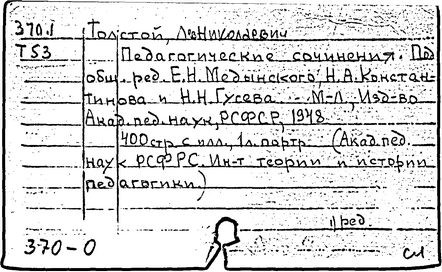 370.1 Толстой, Лев Николаевич
Т53 Педагогические сочинения. Под
общ. ред. Е.Н. Медынского, Н.А. Констан-
тинова и Н.Н. Гусева. - М-Л, Изд-во
Акад. пед. наук, РСФСР, 1948
400 стр. с илл., 1 л. портр. (Акад. пед.
наук РСФРС. Ин-т теории и истории
педагогики)
ред
370-0